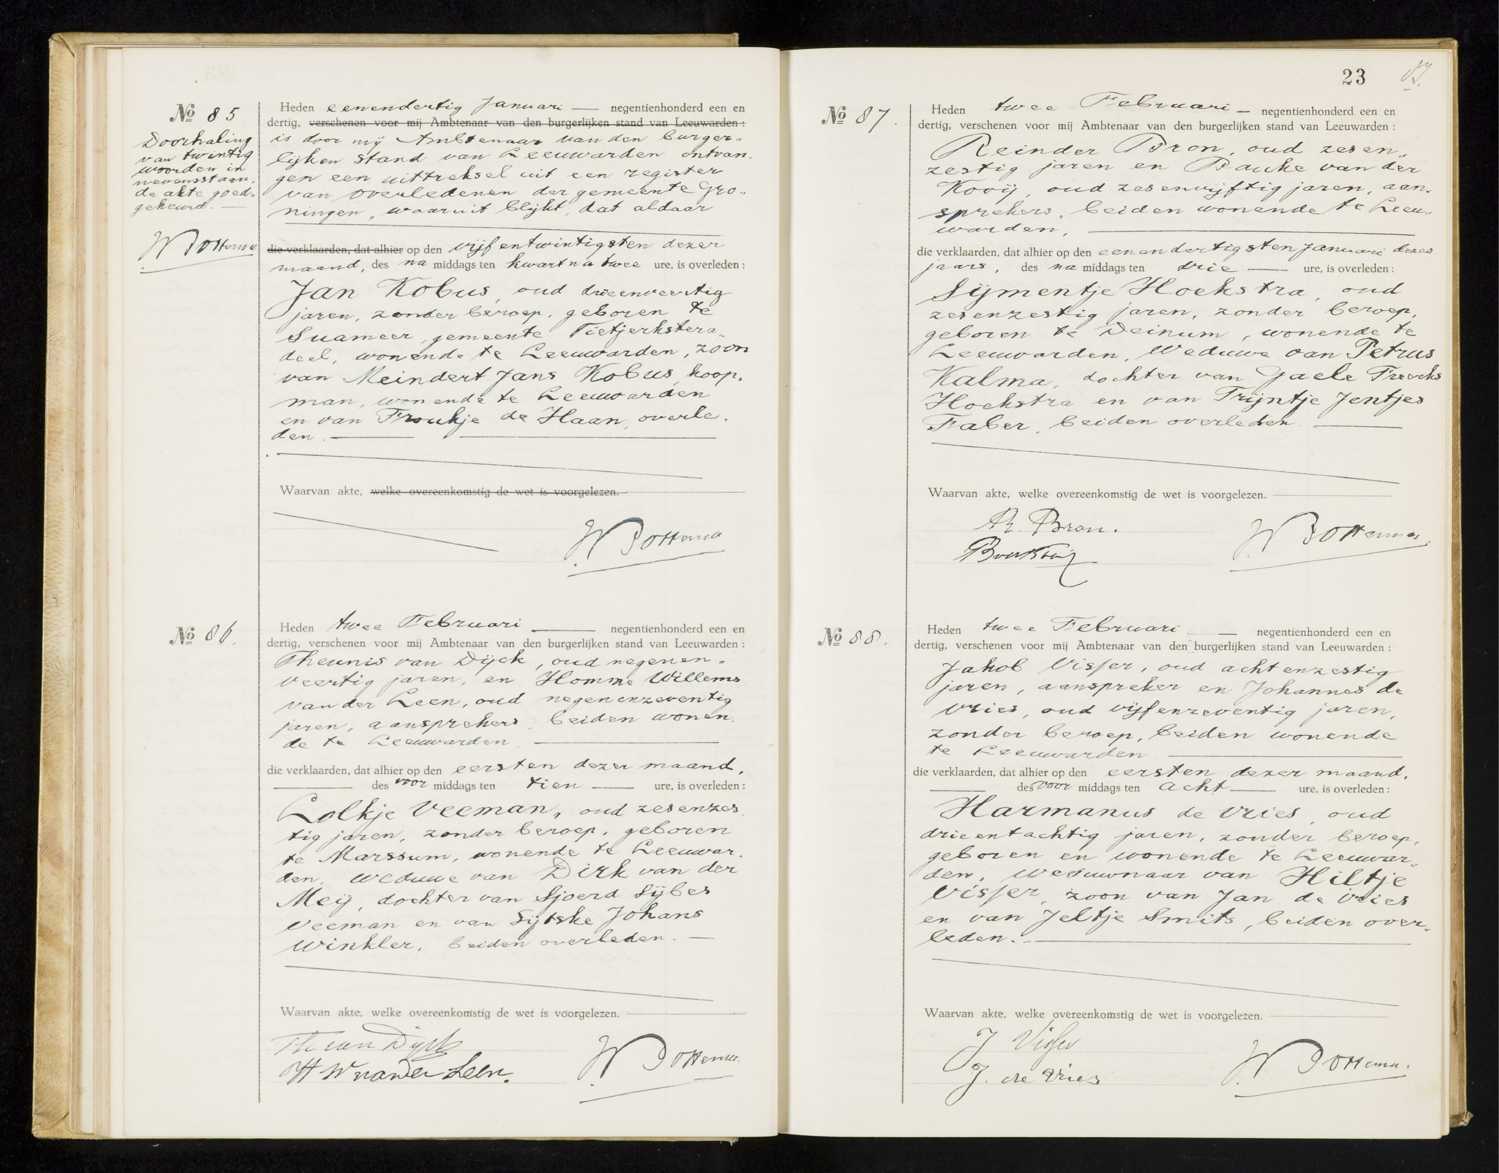 № 85
Doorhaling
van twintig
woorden in
nevensstaan-
de akte goed-
gekeurd. —
Heden eenendertig Januari — negentienhonderd een en
dertig, verschenen voor mij Ambtenaar van den burgerlijken stand van Leeuwarden:
is door mij Ambtenaar van den burger-
lijken stand van Leeuwarden ontvan-
gen een uittreksel uit een register
van overledenen der gemeente Gro-
ningen, waaruit blijkt, dat aldaar
die verklaarden, dat alhier op den vijfentwintigsten dezer
maand, des na middags ten kwart na twee ure, is overleden:
Jan Kobus, oud drieenveertig
jaren, zonder beroep, geboren te
Suameer, gemeente Tietjerkstera-
deel, wonende te Leeuwarden, zoon
van Meindert Jans Kobus, koop-
man, wonende te Leeuwarden
en van Froukje de Haan, overle-
den. —
Waarvan akte, welke overeenkomstig de wet is voorgelezen.
№ 86.
Heden twee Februari — negentienhonderd een en
dertig, verschenen voor mij Ambtenaar van den burgerlijken stand van Leeuwarden:
Theunis van Dijck, oud negenen-
veertig jaren, en Homme Willems
van der Leen, oud negenenzeventig
jaren, aansprekers, beiden wonen-
de te Leeuwarden —
die verklaarden, dat alhier op den eersten dezer maand,
— des voor middags ten tien — ure, is overleden:
Lolkje Veeman, oud zesenzes-
tig jaren, zonder beroep, geboren
te Marssum, wonende te Leeuwar-
den, weduwe van Dirk van der
Meij, dochter van Sjoerd Sijbes
Veeman en van Sijtske Johans
Winkler, beiden overleden. —
Waarvan akte, welke overeenkomstig de wet is voorgelezen. —
Th van Dijck
H W van der Leen.
23
87.
№ 87.
Heden twee Februari — negentienhonderd een en
dertig, verschenen voor mij Ambtenaar van den burgerlijken stand van Leeuwarden:
Reinder Bron, oud zesen-
zestig jaren en Bauke van der
Kooij, oud zesenvijftig jaren, aan-
sprekers, beiden wonende te Leeu-
warden, —
die verklaarden, dat alhier op den eenendertigsten Januari dezes
jaars, des na middags ten drie — ure, is overleden:
Sijmentje Hoekstra, oud
zesenzestig jaren, zonder beroep,
geboren te Deinum, wonende te
Leeuwarden, Weduwe van Petrus
Kalma, dochter van Gaele Freerks
Hoekstra en van Trijntje Jentjes
Faber, beiden overleden —
Waarvan akte, welke overeenkomstig de wet is voorgelezen. —
R. Bron.
№ 88.
Heden twee Februari — negentienhonderd een en
dertig, verschenen voor mij Ambtenaar van den burgerlijken stand van Leeuwarden:
Jakob Visser, oud achtenzestig
jaren, aanspreker en Johannes de
Vries, oud vijfenzeventig jaren,
zonder beroep, beiden wonende
te Leeuwarden —
die verklaarden, dat alhier op den eersten dezer maand,
— des voor middags ten acht — ure, is overleden:
Harmanus de Vries, oud
drieentachtig jaren, zonder beroep,
geboren en wonende te Leeuwar-
den, Weduwnaar van Hiltje
Visser, zoon van Jan de Vries
en van Jeltje Smits, beiden over-
leden. —
Waarvan akte, welke overeenkomstig de wet is voorgelezen. —
J Visser
J. de Vries